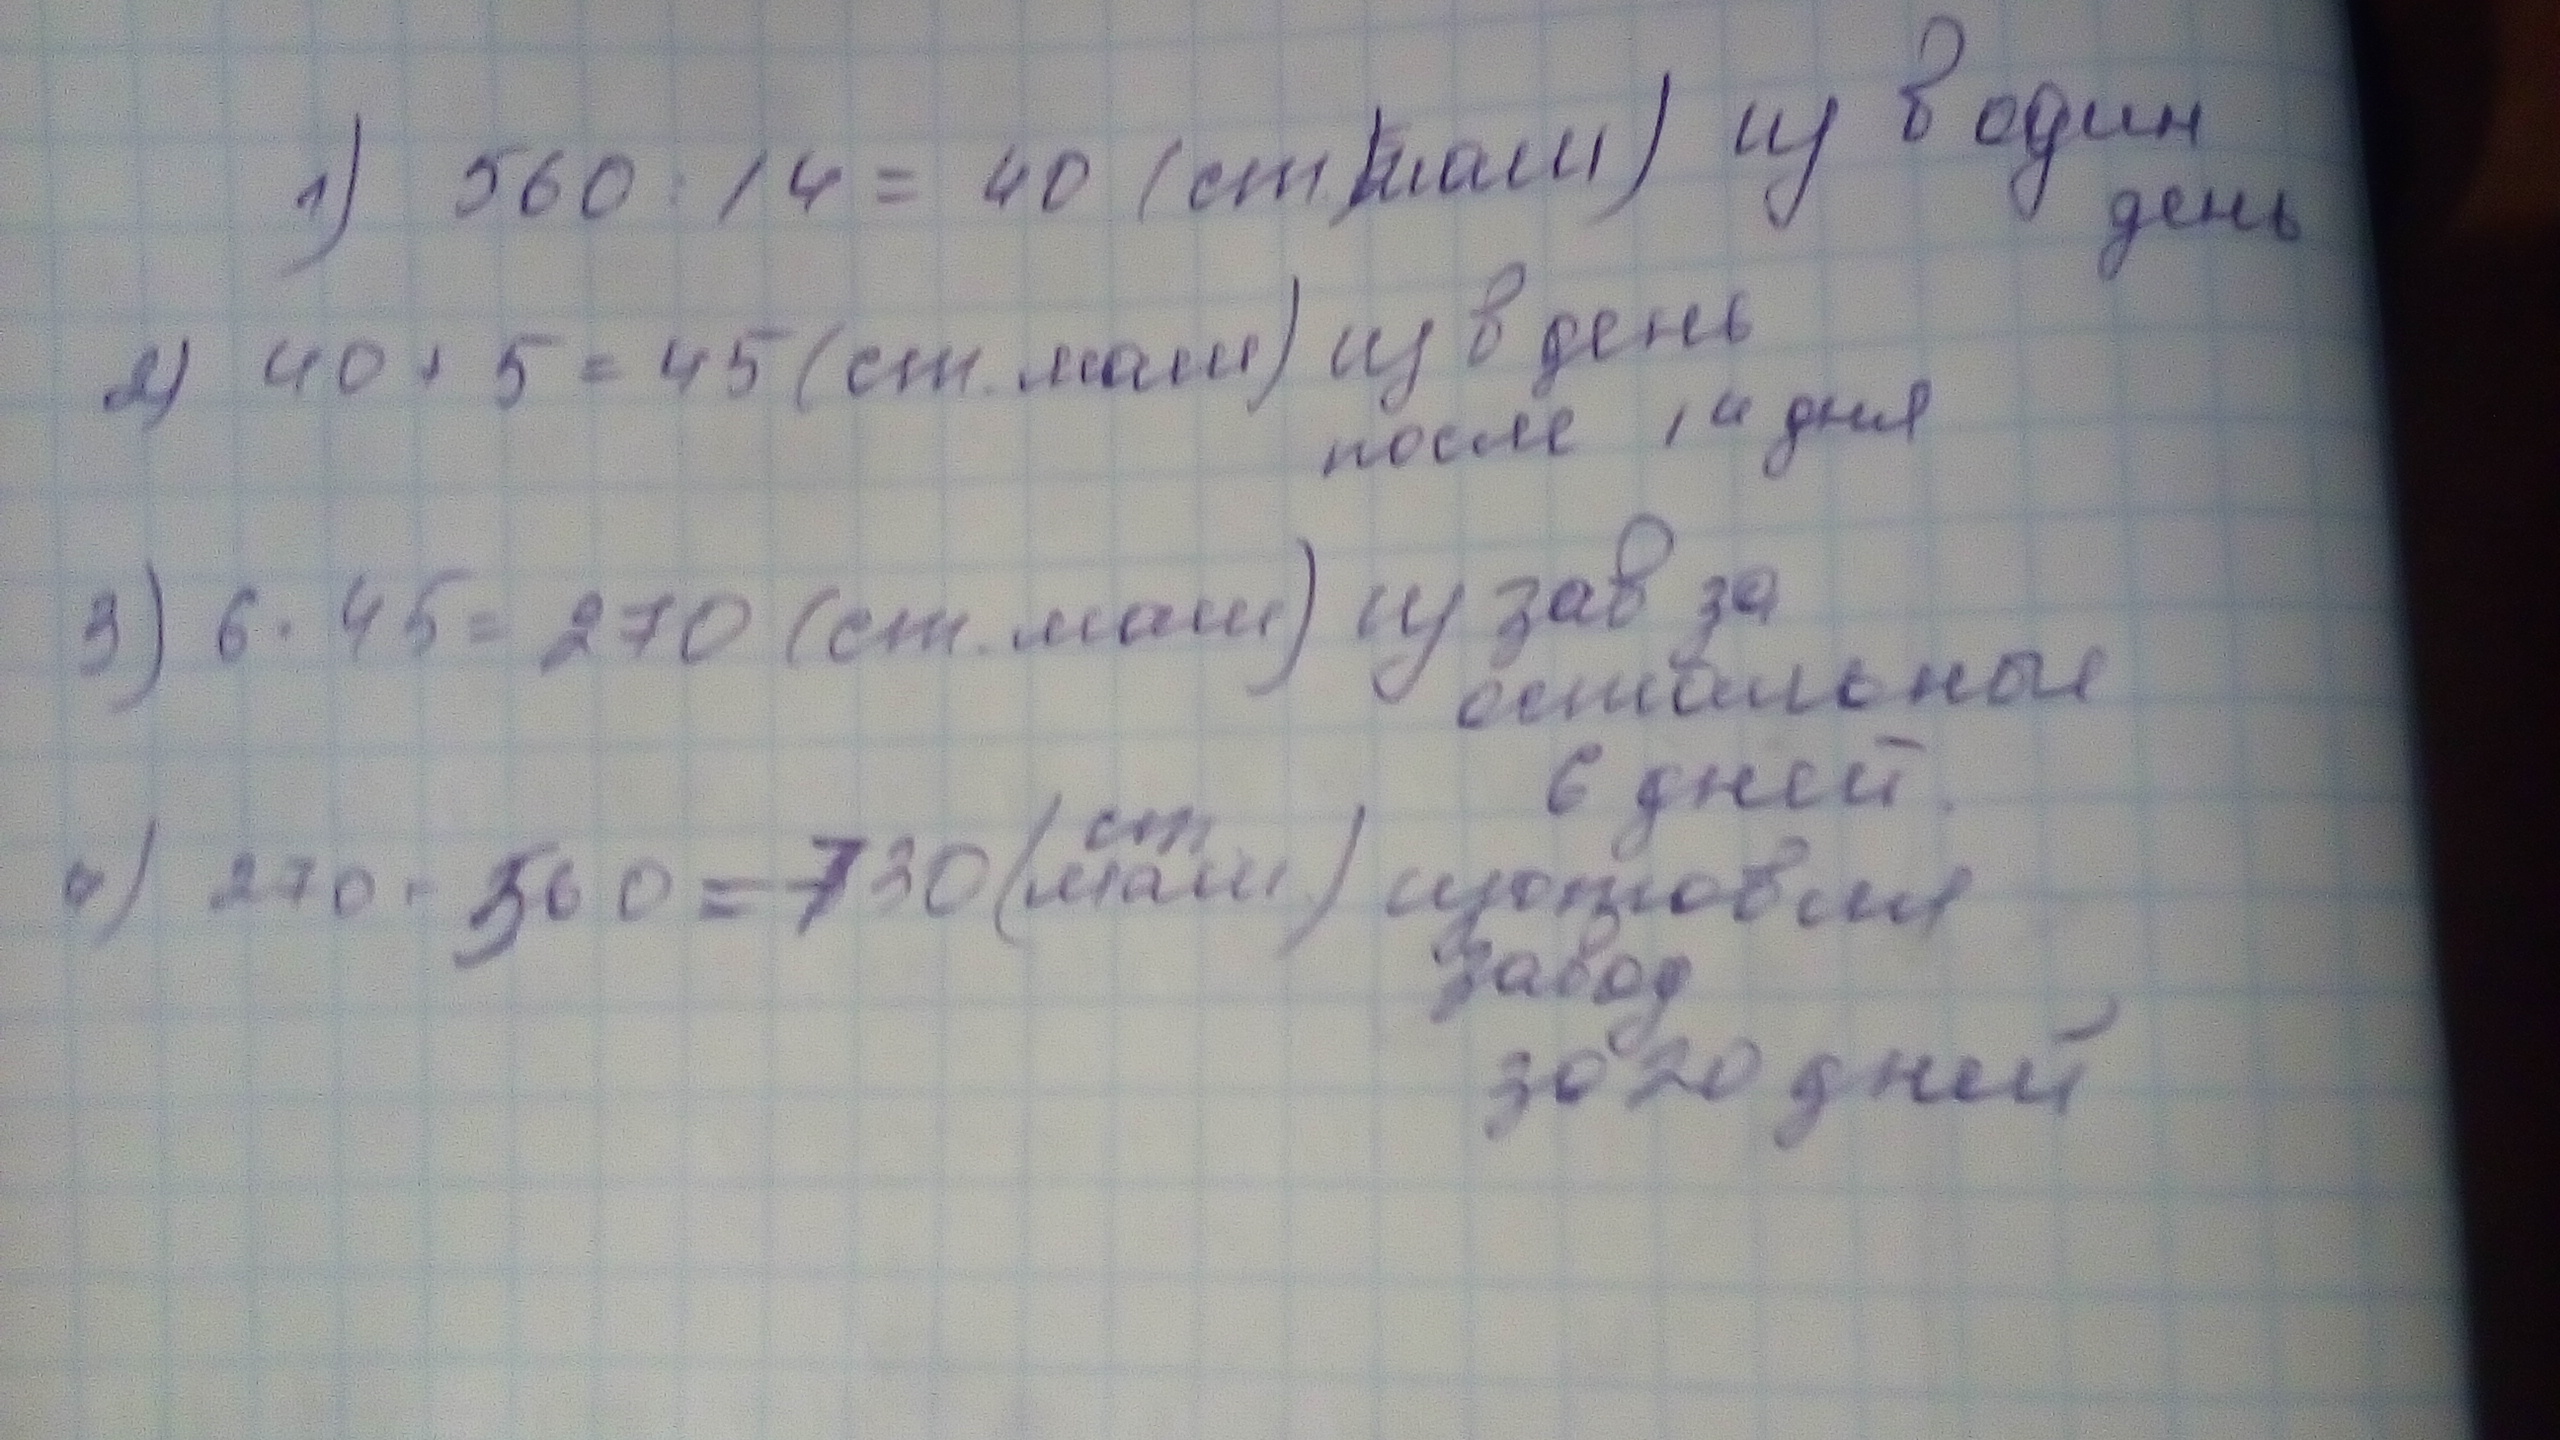 1) 560 : 14 = 40 (ст. маш) из в один
день
2) 40 + 5 = 45 (ст. маш) из в день
после 14 дня
3) 6 · 45 = 270 (ст. маш) из зав за
остальные
6 дней.
4) 270 + 560 = 730 (ст маш.) изготовил
завод
за 20 дней